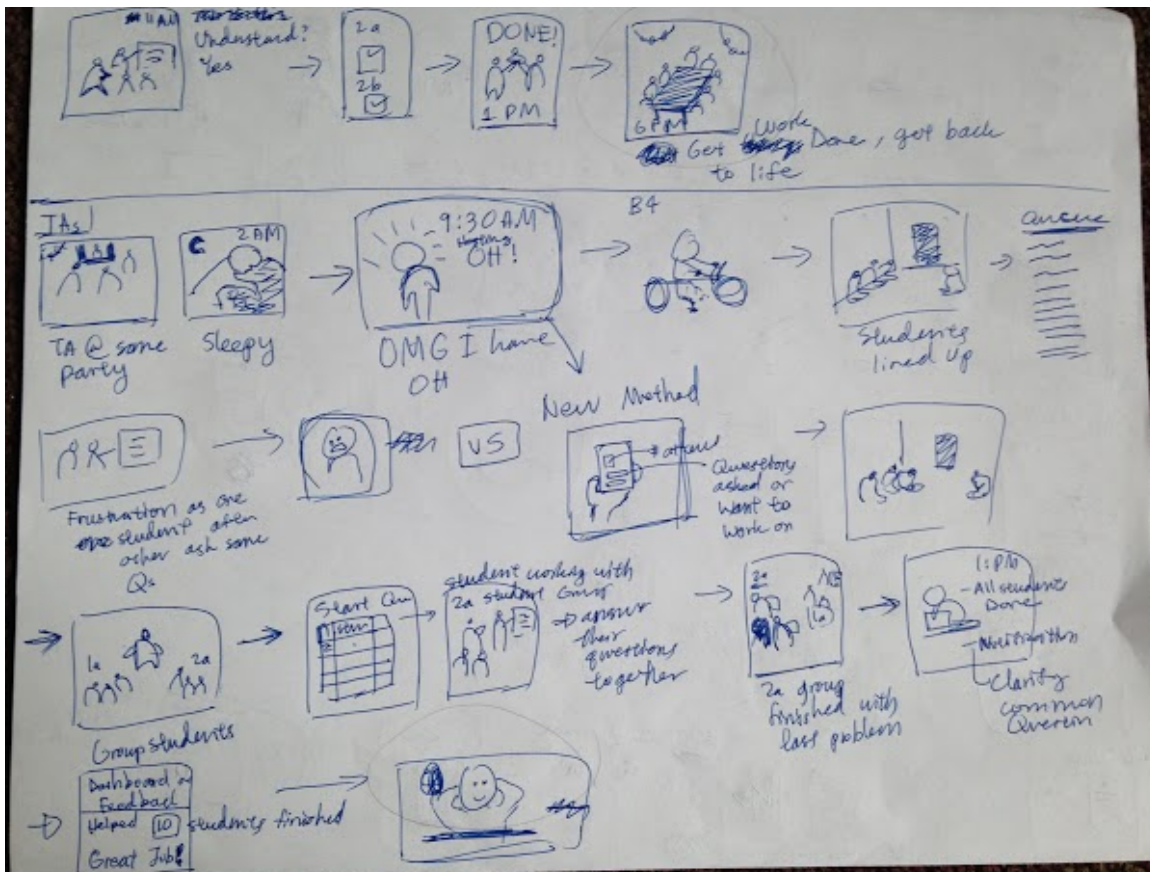 11 AM
Understand?
Yes
2a
2b
DONE!
1 PM
6PM
Get Work Done, get back
to life
TAs
2 AM
9:30 AM
OH!
B4
Queue
TA @ some
Party
Sleepy
OMG I have
OH
Students
lined up
New Method
VS
Questions
asked or
want to
work on
Frustration as one
student after
other ask same
Qs
1a
2a
Group students
Start Qu
student working with
2a student Group
→ answer
their
questions
together
2a
2a group
finished with
last problem
1:PM
- All students
Done
Clarify
common
Question
Dashboard
Feedback
Helped 10 students finished
Great Job!